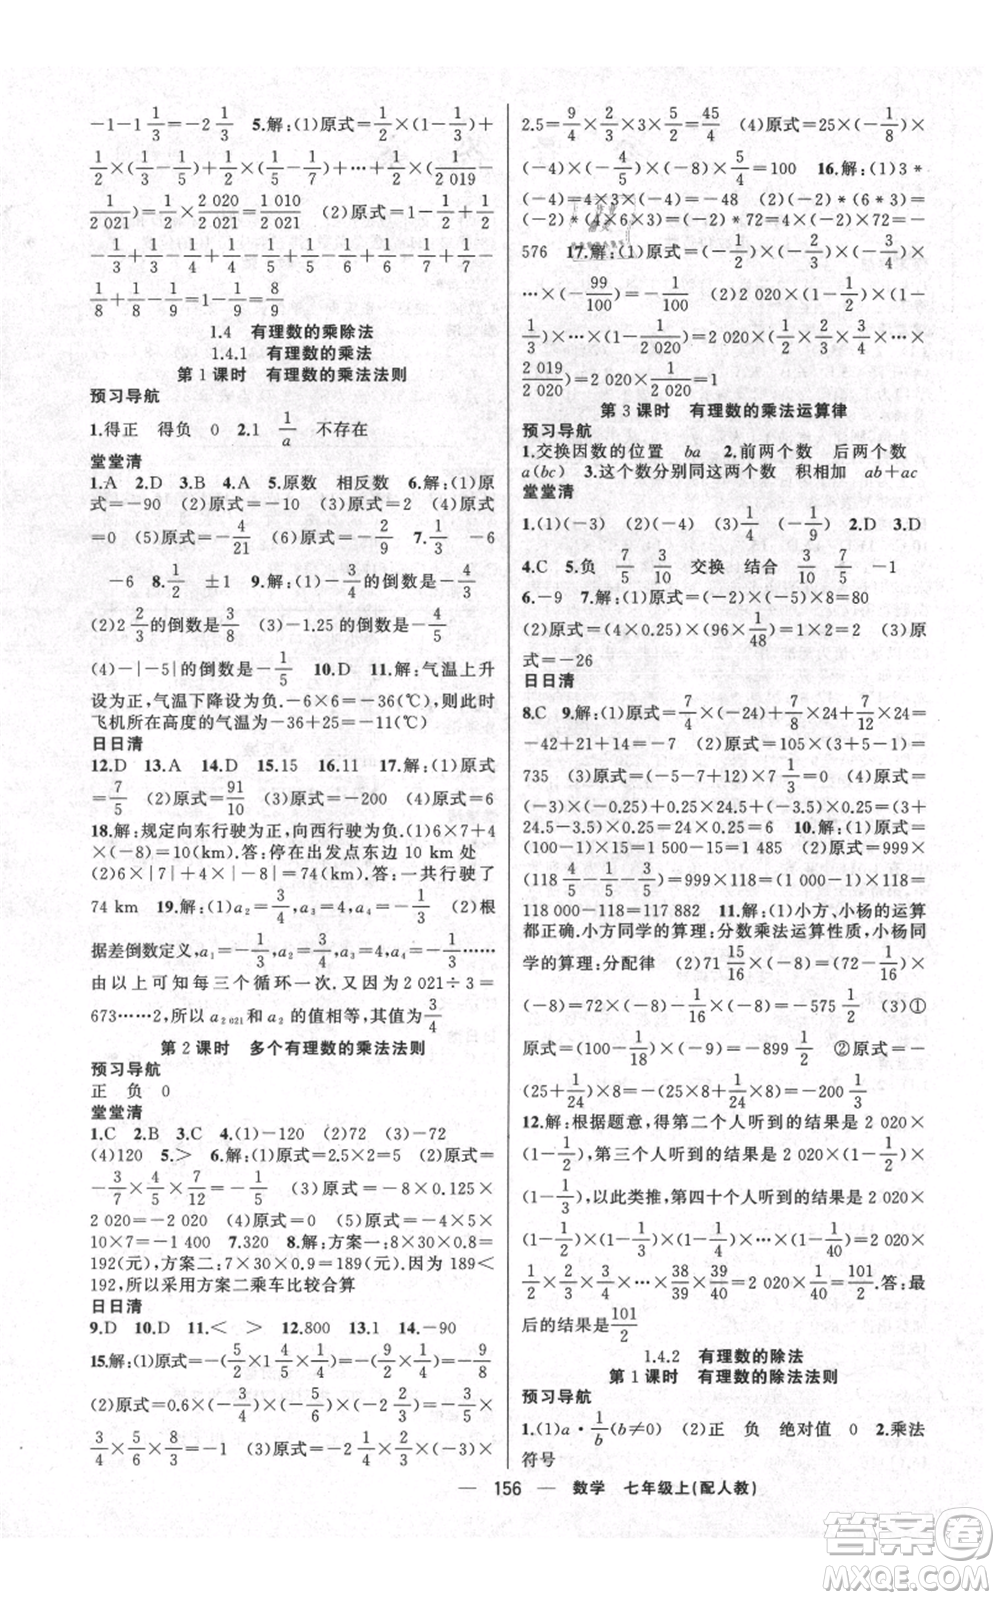 -1-1 1/3=-2 1/3　5.解:(1)原式=1/2×(1-1/3)+
1/2×(1/3-1/5)+1/2×(1/5-1/7)+…+1/2×(1/2 019-
1/2 021)=1/2×2 020/2 021=1 010/2 021　(2)原式=1-1/2+1/2
-1/3+1/3-1/4+1/4-1/5+1/5-1/6+1/6-1/7+1/7-
1/8+1/8-1/9=1-1/9=8/9
1.4　有理数的乘除法
1.4.1　有理数的乘法
第1课时　有理数的乘法法则
预习导航
1.得正　得负　0　2.1　1/a　不存在
堂堂清
1.A　2.D　3.B　4.A　5.原数　相反数　6.解:(1)原
式=-90　(2)原式=-10　(3)原式=2　(4)原式
=0　(5)原式=-4/21　(6)原式=-2/9　7.1/3　-6
-6　8.1/2　±1　9.解:(1)-3/4的倒数是-4/3
(2)2 2/3的倒数是3/8　(3)-1.25的倒数是-4/5
(4)-|-5|的倒数是-1/5　10.D　11.解:气温上升
设为正,气温下降设为负.-6×6=-36(℃),则此时
飞机所在高度的气温为-36+25=-11(℃)
日日清
12.D　13.A　14.D　15.15　16.11　17.解:(1)原式
=7/5　(2)原式=91/10　(3)原式=-200　(4)原式=6
18.解:规定向东行驶为正,向西行驶为负.(1)6×7+4
×(-8)=10(km).答:停在出发点东边 10 km 处
(2)6×|7|+4×|-8|=74(km).答:一共行驶了
74 km　19.解:(1)a₂=3/4,a₃=4,a₄=-1/3　(2)根
据差倒数定义,a₁=-1/3,a₂=3/4,a₃=4,a₄=-1/3……
由以上可知每三个循环一次.又因为2 021÷3=
673……2,所以a₂₀₂₁和a₂的值相等,其值为3/4
第2课时　多个有理数的乘法法则
预习导航
正　负　0
堂堂清
1.C　2.B　3.C　4.(1)-120　(2)72　(3)-72
(4)120　5.>　6.解:(1)原式=2.5×2=5　(2)原式=
-3/7×4/5×7/12=-1/5　(3)原式=-8×0.125×
2 020=-2 020　(4)原式=0　(5)原式=-4×5×
10×7=-1 400　7.320　8.解:方案一:8×30×0.8=
192(元),方案二:7×30×0.9=189(元).因为189<
192,所以采用方案二乘车比较合算
日日清
9.D　10.D　11.<　>　12.800　13.1　14.-90
15.解:(1)原式=-(5/2×1 1/4×3/4×4/3×9/10)=-9/8
(2)原式=0.6×(-3/4)×(-5/6)×(-2 2/3)=-3/5×
3/4×5/6×8/3=-1　(3)原式=-2 1/4×(-4/3)×(-3)×
2.5=9/4×4/3×3×5/2=45/2　(4)原式=25×(-1/8)×
(-4)×(-4/5)×(-8)×5/4=100　16.解:(1)3*
(-4)=4×3×(-4)=-48　(2)(-2)*(6*3)=
(-2)*(4×6×3)=(-2)*72=4×(-2)×72=-
576　17.解:(1)原式=(-1/2)×(-2/3)×(-3/4)×
…×(-99/100)=-1/100　(2)2 020×(1-1/2)×(1-
1/3)×…×(1-1/2 020)=2 020×(1/2×2/3×3/4×…×
2 019/2 020)=2 020×1/2 020=1
第3课时　有理数的乘法运算律
预习导航
1.交换因数的位置　ba　2.前两个数　后两个数
a(bc)　3.这个数分别同这两个数　积相加　ab+ac
堂堂清
1.(1)(-3)　(2)(-4)　(3)1/4　(-1/9)　2.D　3.D
4.C　5.负　7/5　3/10　交换　结合　3/10　7/5　-1
6.-9　7.解:(1)原式=(-2)×(-5)×8=80
(2)原式=(4×0.25)×(96×1/48)=1×2=2　(3)原
式=-26
日日清
8.C　9.解:(1)原式=7/4×(-24)+7/8×24+7/12×24=
-42+21+14=-7　(2)原式=105×(3+5-1)=
735　(3)原式=(-1-7+12)×7 1/3=0　(4)原式=
(-3)×(-0.25)+0.25×24.5+(-3.5)×0.25=(3+
24.5-3.5)×0.25=24×0.25=6　10.解:(1)原式=
(100-1)×15=1 500-15=1 485　(2)原式=999×
(118 4/5-1/5-18 3/5)=999×118=(1 000-1)×118=
118 000-118=117 882　11.解:(1)小方、小杨的运算
都正确.小方同学的算理:分数乘法运算性质,小杨同
学的算理:分配律　(2)71 15/16×(-8)=(72-1/16)×
(-8)=72×(-8)-1/16×(-8)=-575 1/2　(3)①
原式=(100-1/18)×(-9)=-899 1/2　②原式=-
(25+1/24)×8=-(25×8+1/24×8)=-200 1/3
12.解:根据题意,得第二个人听到的结果是2 020×
(1-1/2),第三个人听到的结果是2 020×(1-1/2)×
(1-1/3),以此类推,第四十个人听到的结果是2 020×
(1-1/2)×(1-1/3)×(1-1/4)×…×(1-1/40)=2 020
×1/2×2/3×3/4×…×38/39×39/40=2 020×1/40=101/2.答:最
后的结果是101/2
1.4.2　有理数的除法
第1课时　有理数的除法法则
预习导航
1.(1)a·1/b(b≠0)　(2)正　负　绝对值　0　2.乘法
符号
— 156 —　数学　七年级上(配人教)
答案圈
MXQE.COM